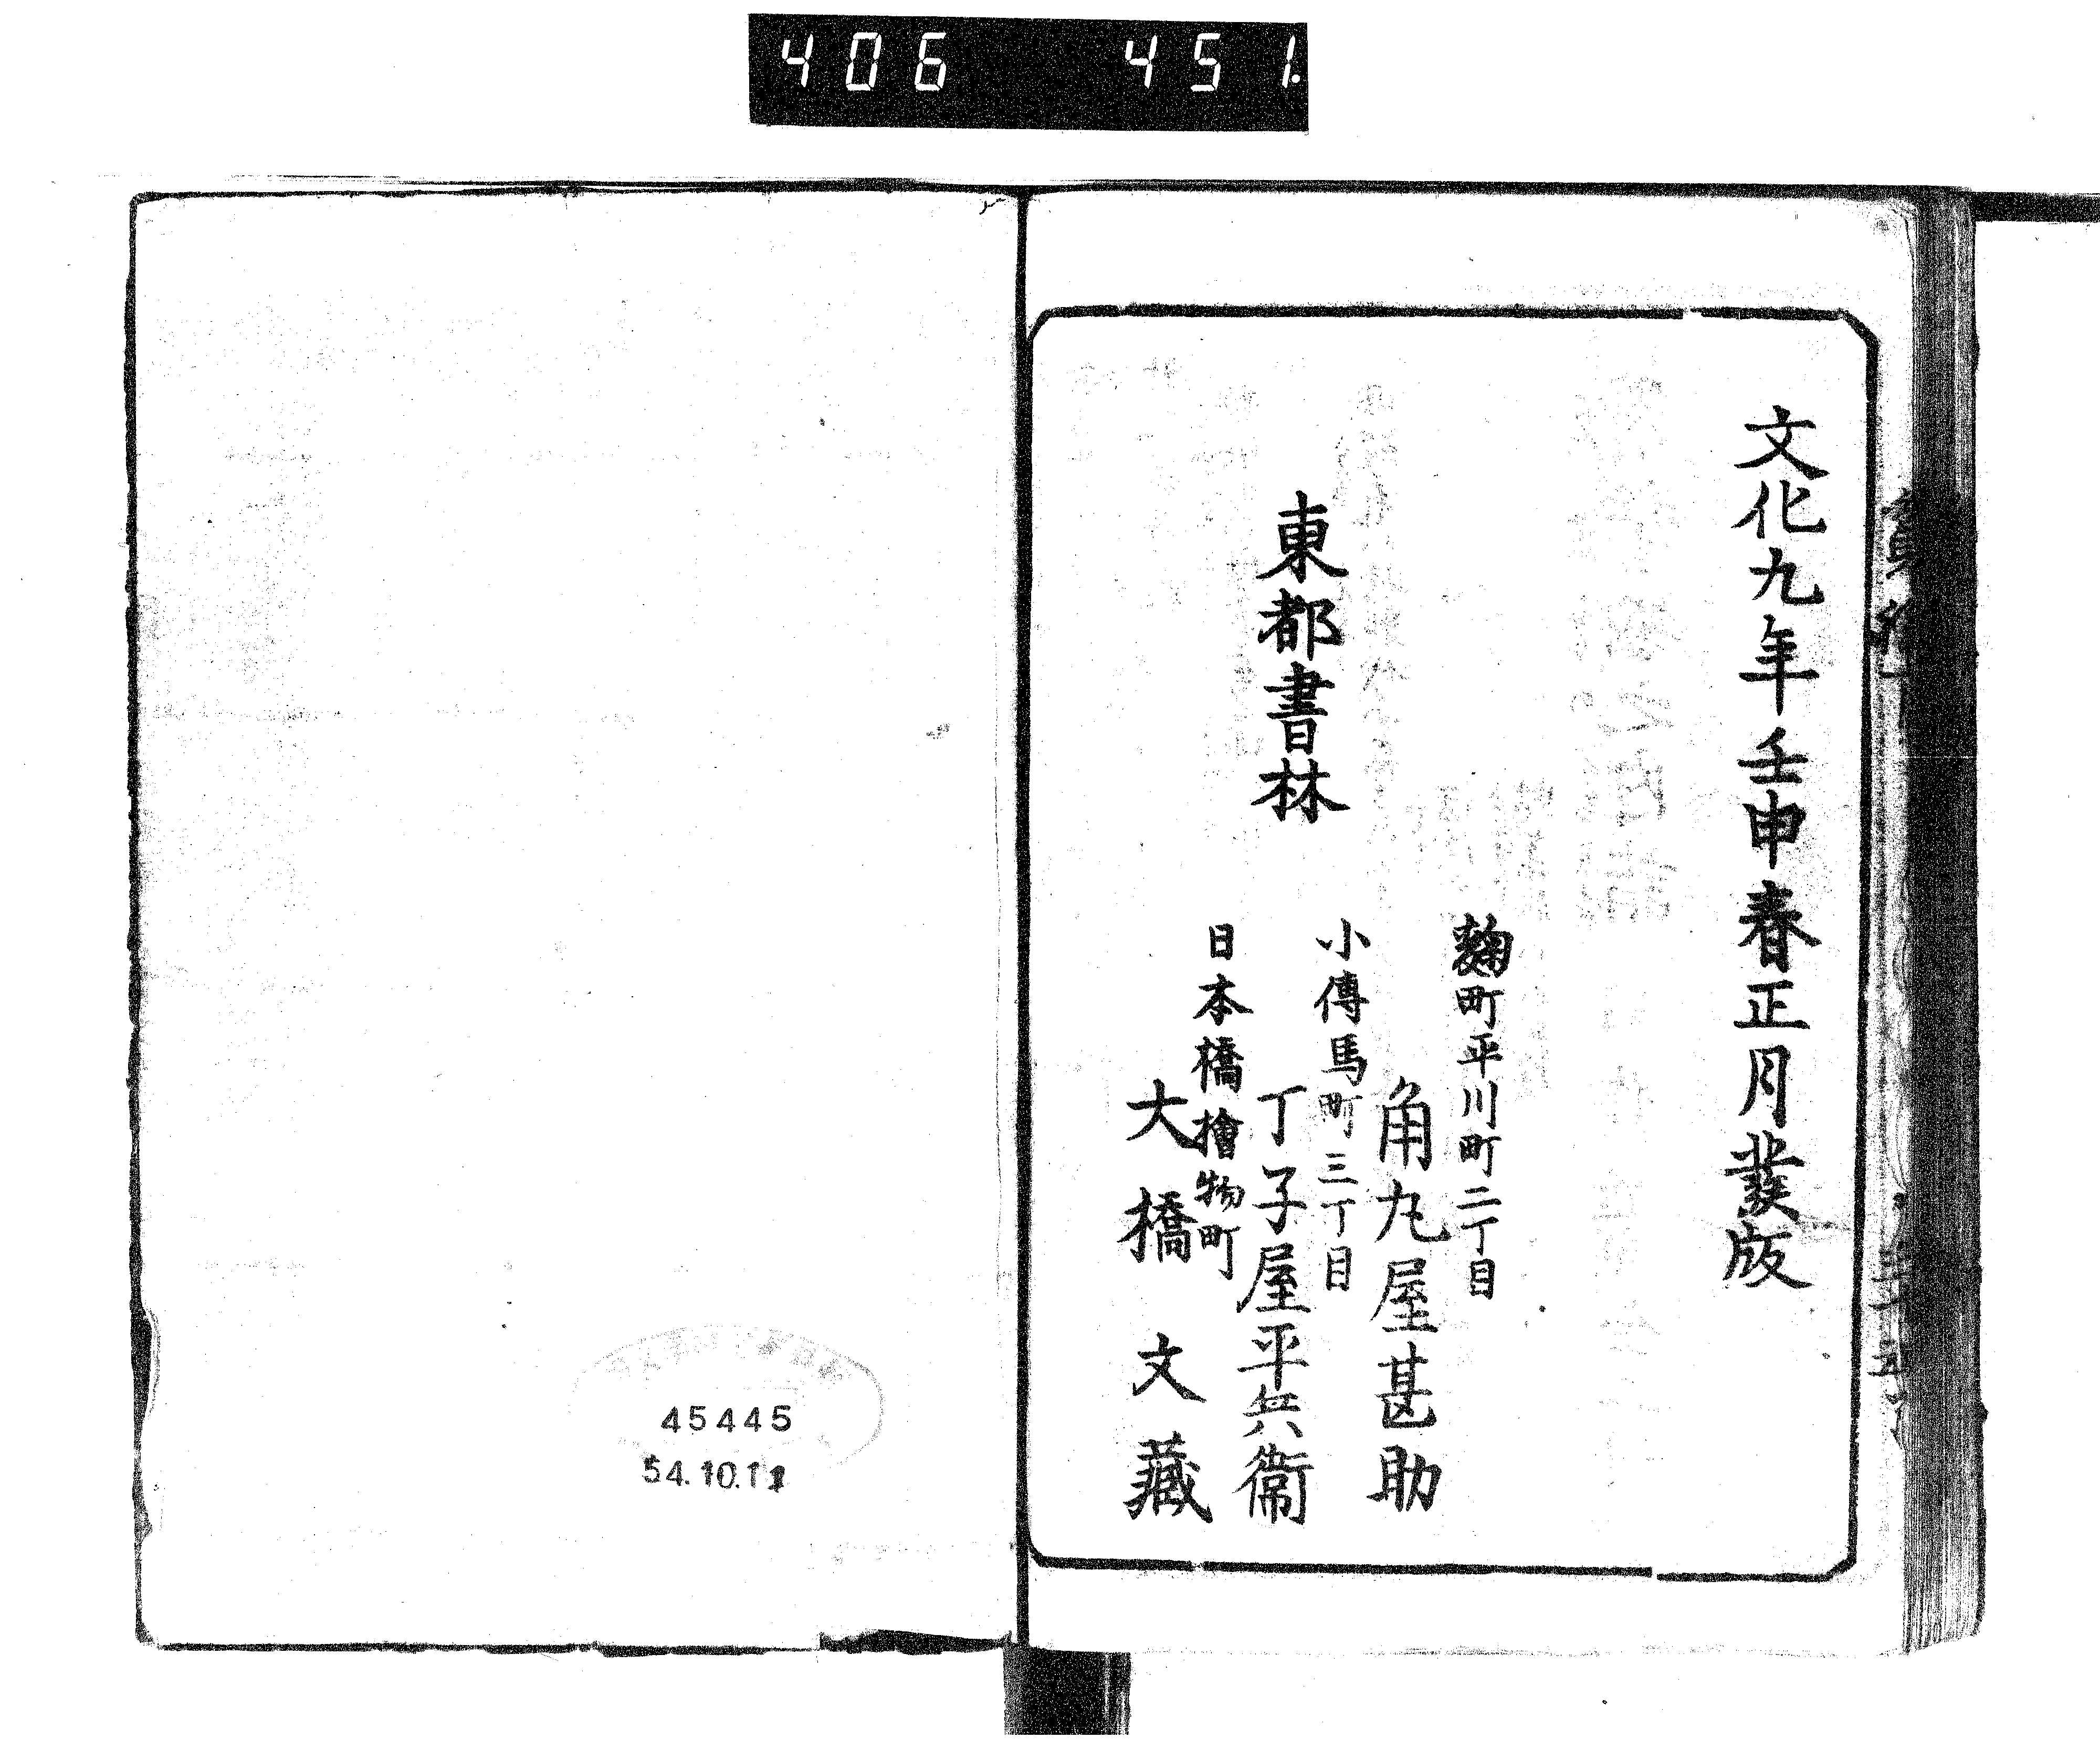 406 451.
文化九年壬申春正月發版
東都書林
麴町平川町二丁目
角丸屋甚助
小傳馬町三丁目
丁子屋平兵衞
日本橋檜物町
大橋文藏
45445
54.10.11